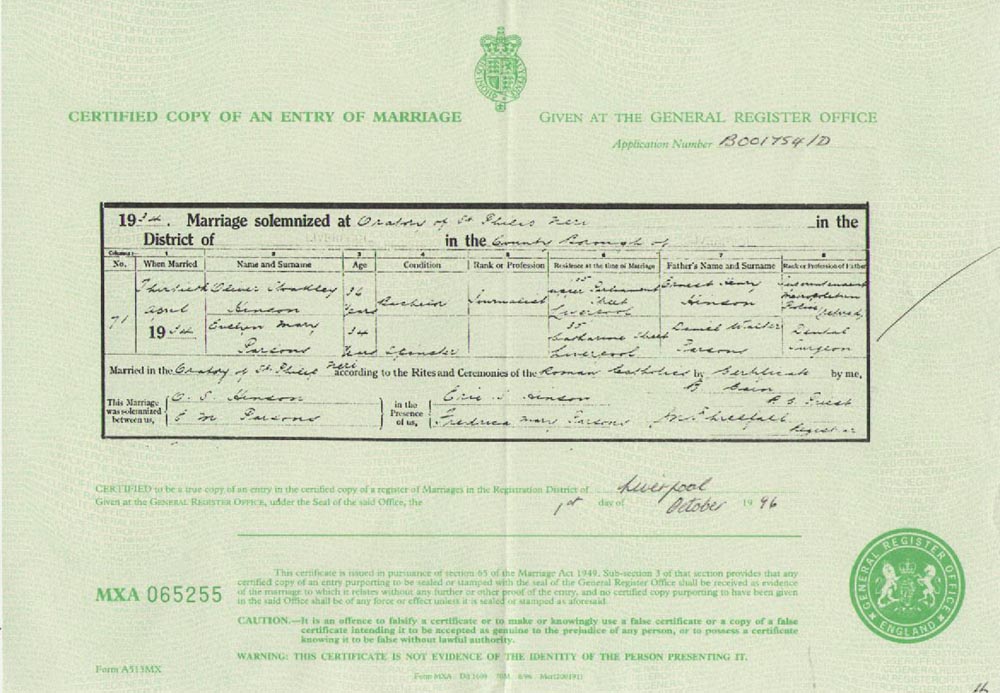 CERTIFIED COPY OF AN ENTRY OF MARRIAGE
GIVEN AT THE GENERAL REGISTER OFFICE
Application Number B001754/D
1934. Marriage solemnized at Oratory of St Philip Neri in the
District of in the County Borough of
Columns:— 1 2 3 4 5 6 7 8
No. When Married Name and Surname Age Condition Rank or Profession Residence at the time of Marriage Father's Name and Surname Rank or Profession of Father
71
Thirtieth April 1934
Hinson
36 Years
Bachelor
Journalist
35 Upper Parliament Street Liverpool
Ernest Henry Hinson
Superintendent Metropolitan Police (retired)
Evelyn Mary Parsons
34 Years
Spinster
35 Catharine Street Liverpool
Daniel Walter Parsons
Dental Surgeon
Married in the Oratory of St. Philip Neri according to the Rites and Ceremonies of the Roman Catholics by Certificate by me,
This Marriage was solemnized between us,
Hinson
E M Parsons
in the Presence of us,
Eric S Hinson
Fredrica Mary Parsons
Priest
Registrar
CERTIFIED to be a true copy of an entry in the certified copy of a register of Marriages in the Registration District of Liverpool
Given at the GENERAL REGISTER OFFICE, under the Seal of the said Office, the 1st day of October 1996
MXA 065255
This certificate is issued in pursuance of section 65 of the Marriage Act 1949. Sub-section 3 of that section provides that any
certified copy of an entry purporting to be sealed or stamped with the seal of the General Register Office shall be received as evidence
of the marriage to which it relates without any further or other proof of the entry, and no certified copy purporting to have been given
in the said Office shall be of any force or effect unless it is sealed or stamped as aforesaid.
CAUTION.—It is an offence to falsify a certificate or to make or knowingly use a false certificate or a copy of a false
certificate intending it to be accepted as genuine to the prejudice of any person, or to possess a certificate
knowing it to be false without lawful authority.
WARNING: THIS CERTIFICATE IS NOT EVIDENCE OF THE IDENTITY OF THE PERSON PRESENTING IT.
Form A513MX
GENERAL REGISTER OFFICE
ENGLAND